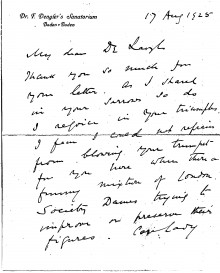 Dr. F. Dengler's Sanatorium
Baden-Baden
17 Aug 1925
My dear De
Thank you so much for
your letter. As I shared
in your sorrows so do
I rejoice in your triumphs.
I fear I could not refrain
from blowing your trumpet
for you here when there's a
funny mixture of London
Society Dames trying to
improve or preserve their
figures.